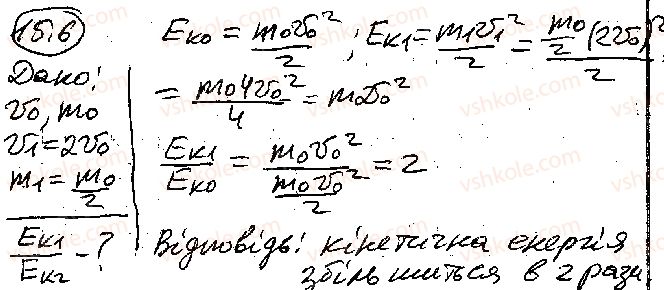 15.6
Дано:
v₀, m₀
v₁ = 2v₀
m₁ = m₀/2
Eк1/Eк2 - ?
Eк0 = m₀v₀²/2 ; Eк1 = m₁v₁²/2 = (m₀/2 (2v₀)²)/2
= m₀4v₀²/4 = m₀v₀²
Eк1/Eк0 = m₀v₀²/(m₀v₀²/2) = 2
Відповідь: кінетична енергія
збільшиться в 2 рази
vshkole.com